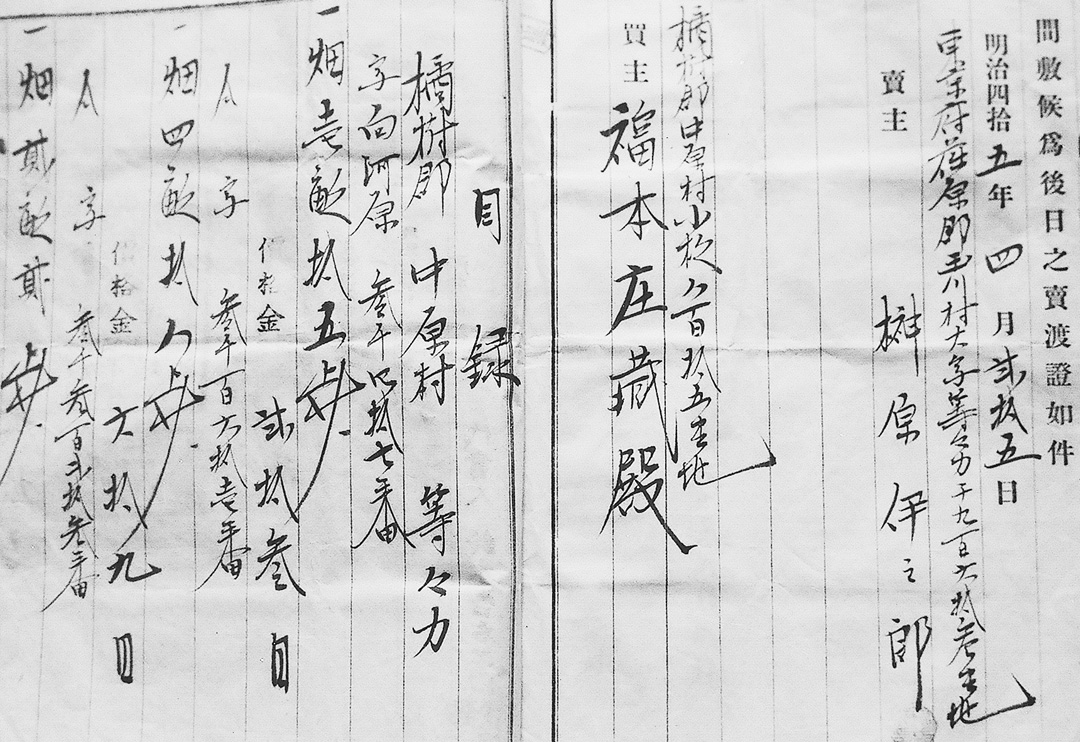 間敷候爲後日之賣渡證如件
明治四拾五年四月弐拾五日
東京府荏原郡玉川村大字等々力千九百六拾参番地
賣主
榊原伊之郎
橘樹郡中原村小杉八百拾五番地
買主
福本庄蔵殿
目録
橘樹郡中原村等々力
字向河原参千四拾七番
一畑壱畝拾五歩
價格金弐拾参円
仝字参千百六拾壱番
一畑四畝拾八歩
價格金六拾九円
仝字参千参百弐拾参番
一畑貳畝貳歩